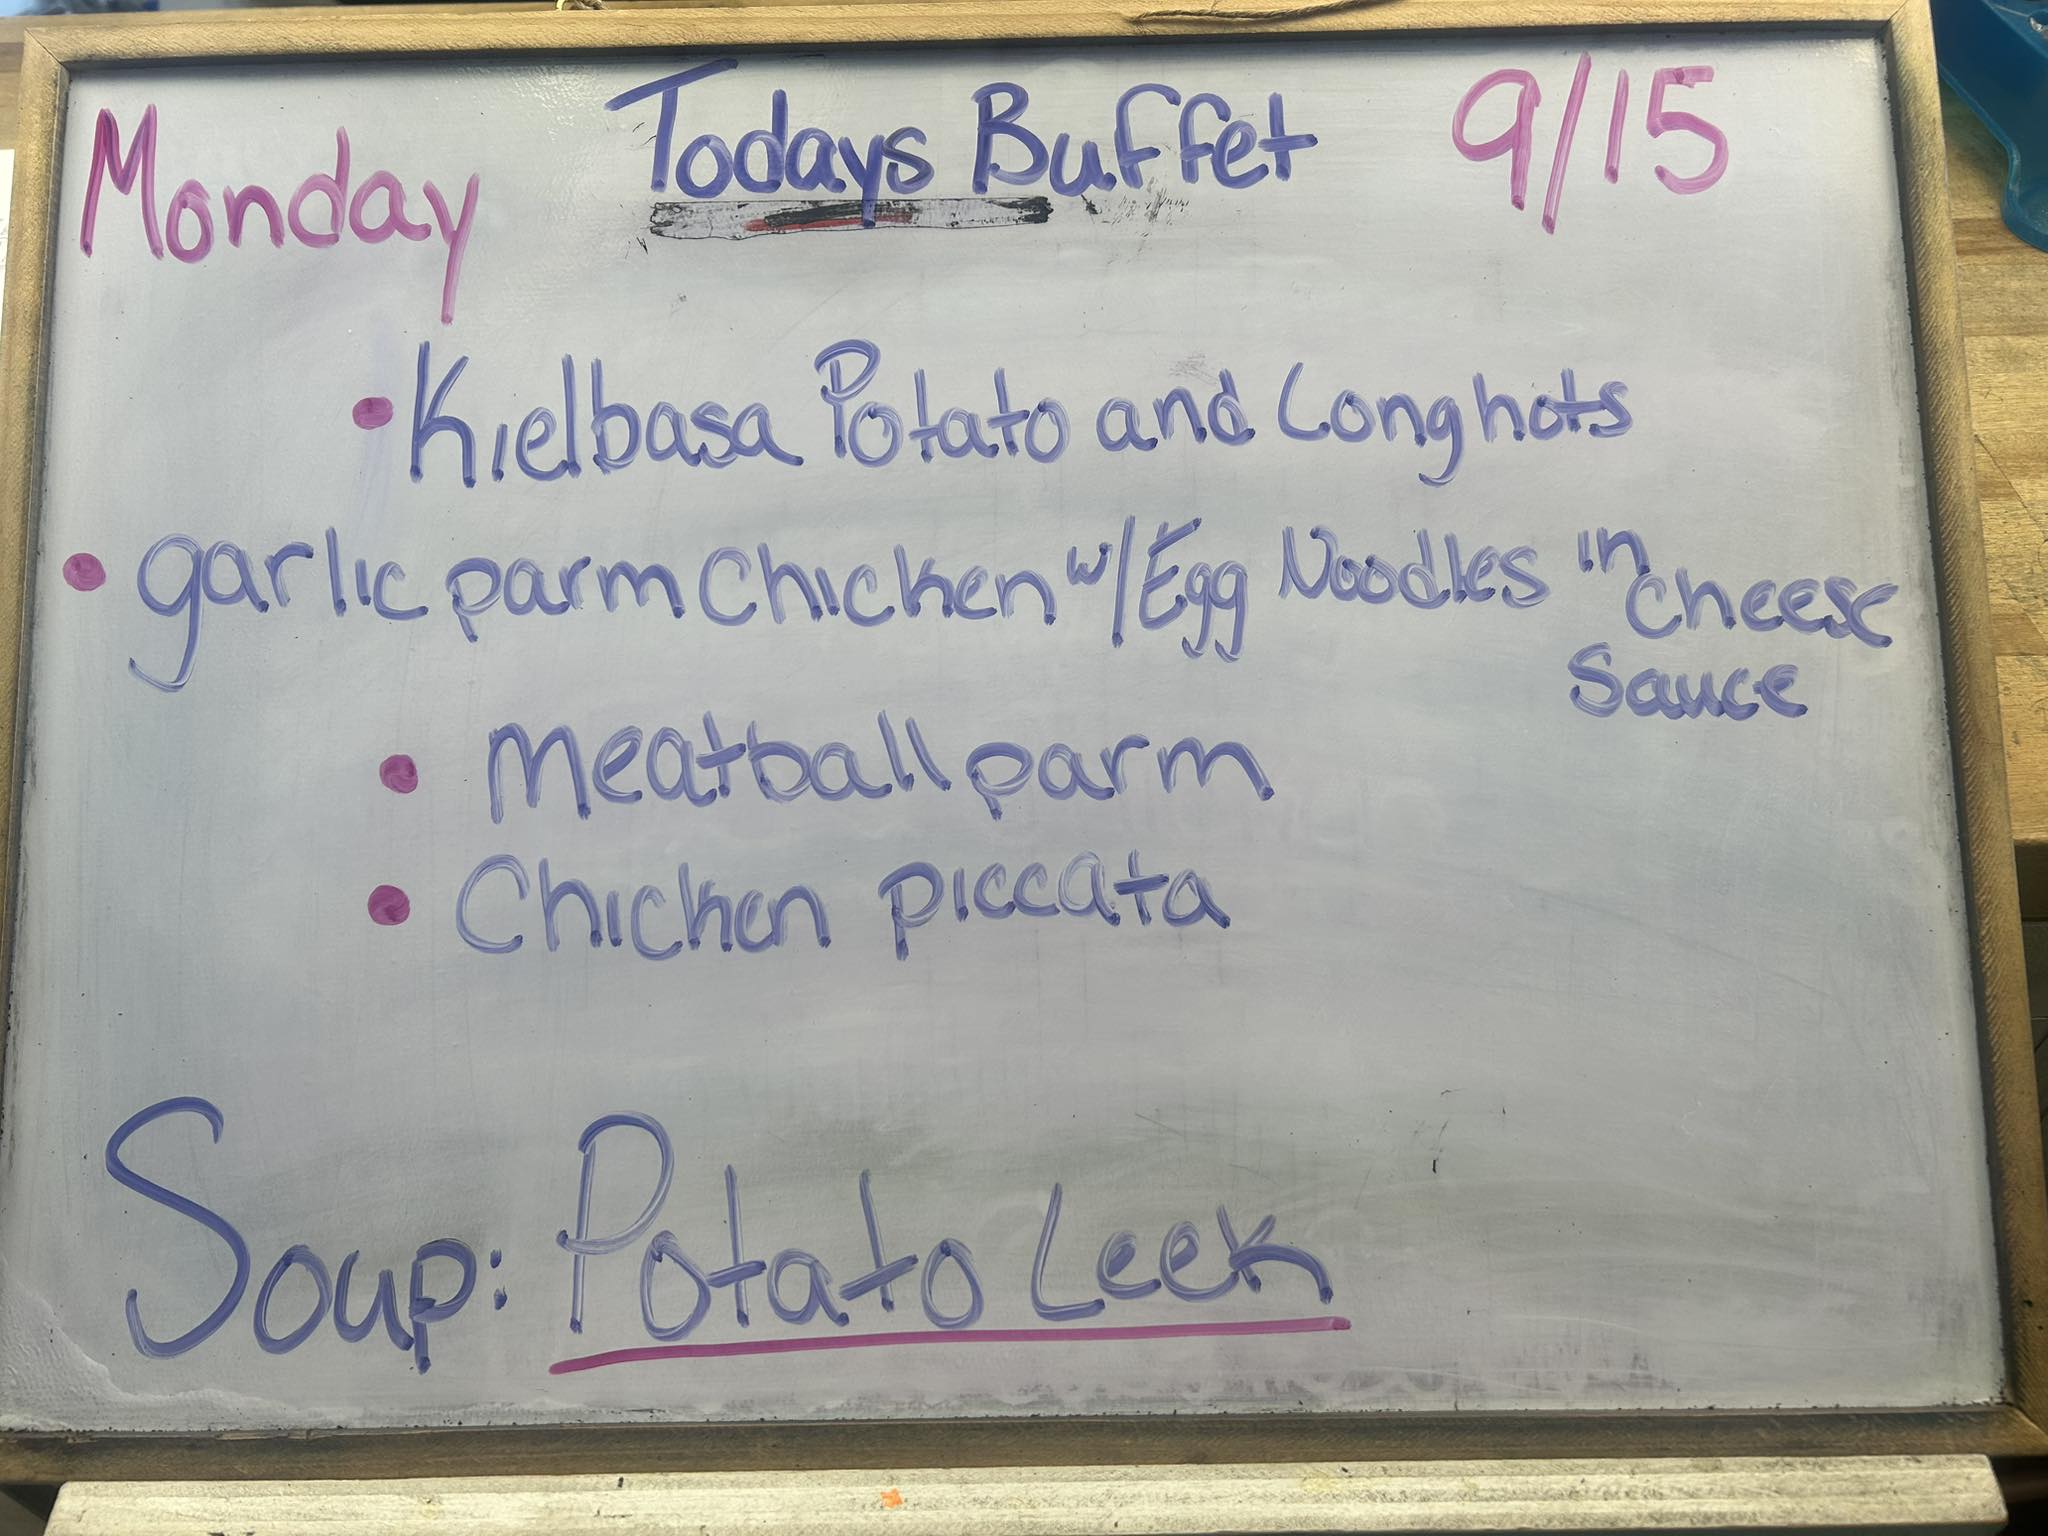 Monday Todays Buffet 9/15
• Kielbasa Potato and Longhots
• garlic parm Chicken w/ Egg Noodles in cheese
sauce
• meatball parm
• Chicken piccata
Soup: Potato Leek